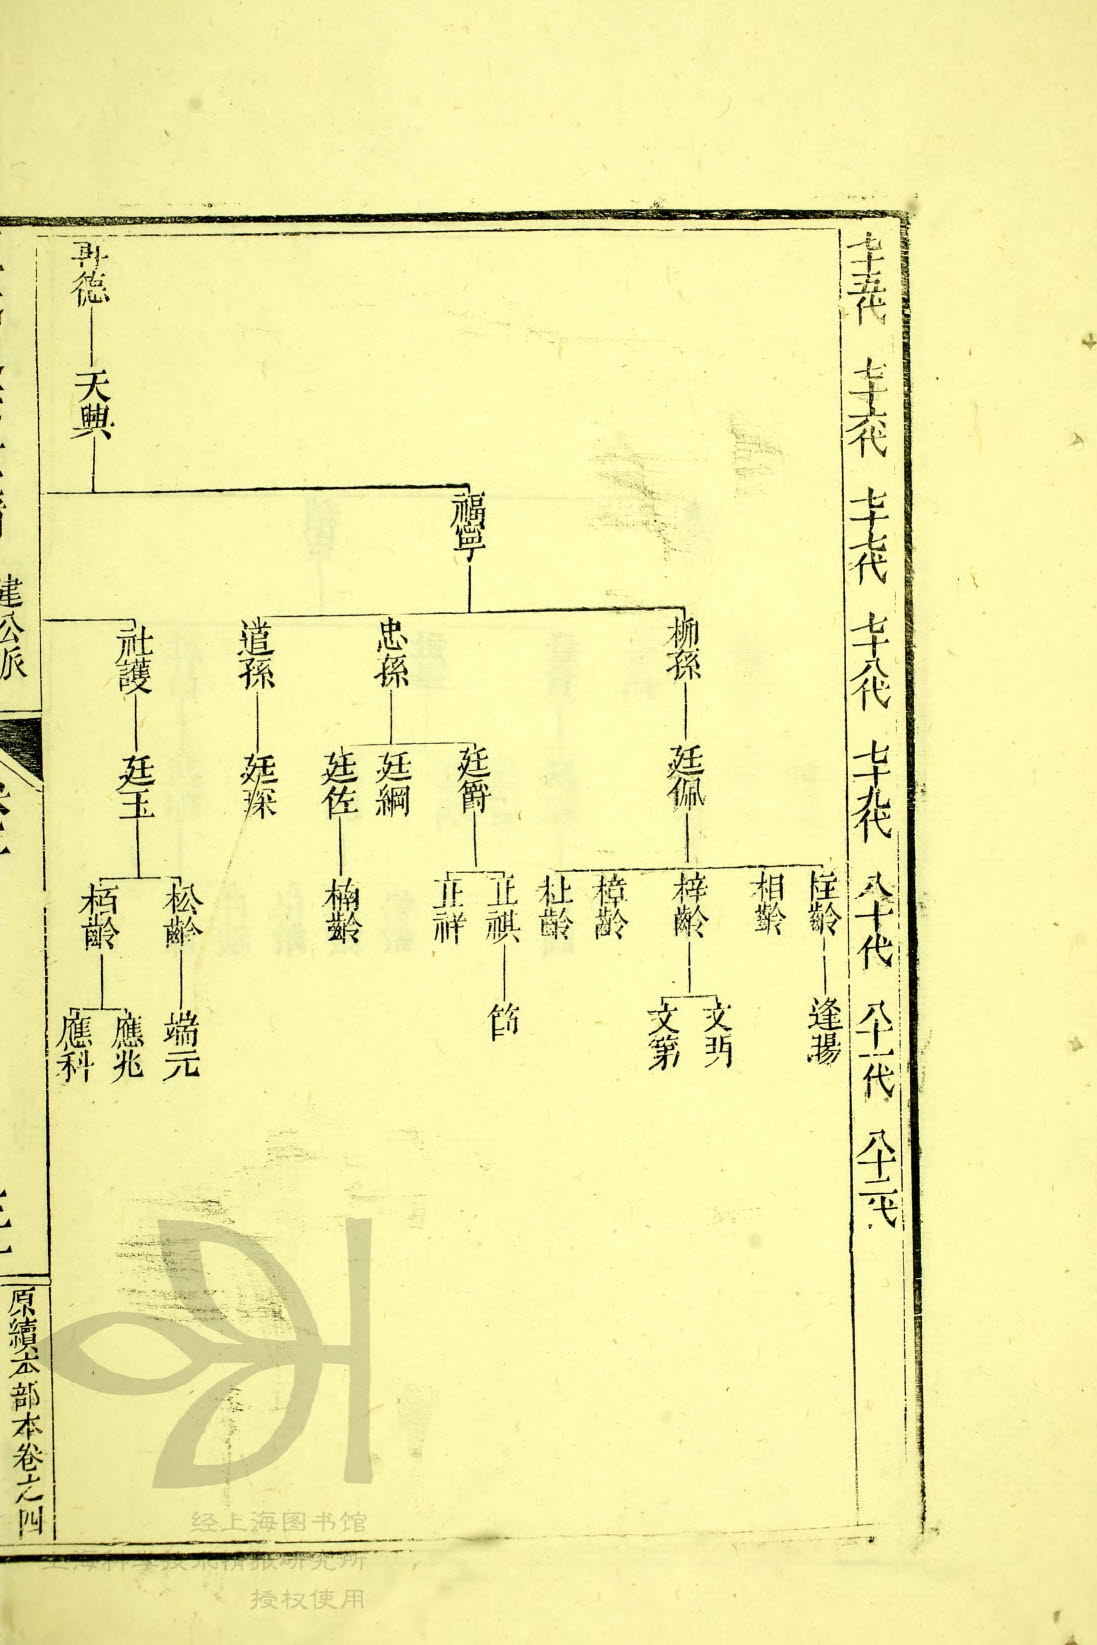 七十五代 七十六代 七十七代 七十八代 七十九代 八十代 八十一代 八十二代
再德
天興
福寧
柳孫
忠孫
道孫
社護
廷佩
廷爵
廷綱
廷佐
廷琛
廷玉
柱齡
相齡
梓齡
樟齡
杜齡
正祺
正祥
楠齡
松齡
栢齡
逢暘
文明
文第
筋
端元
應兆
應科
建公派
原續本部本卷之四
经上海图书馆
上海科学技术情报研究所
授权使用